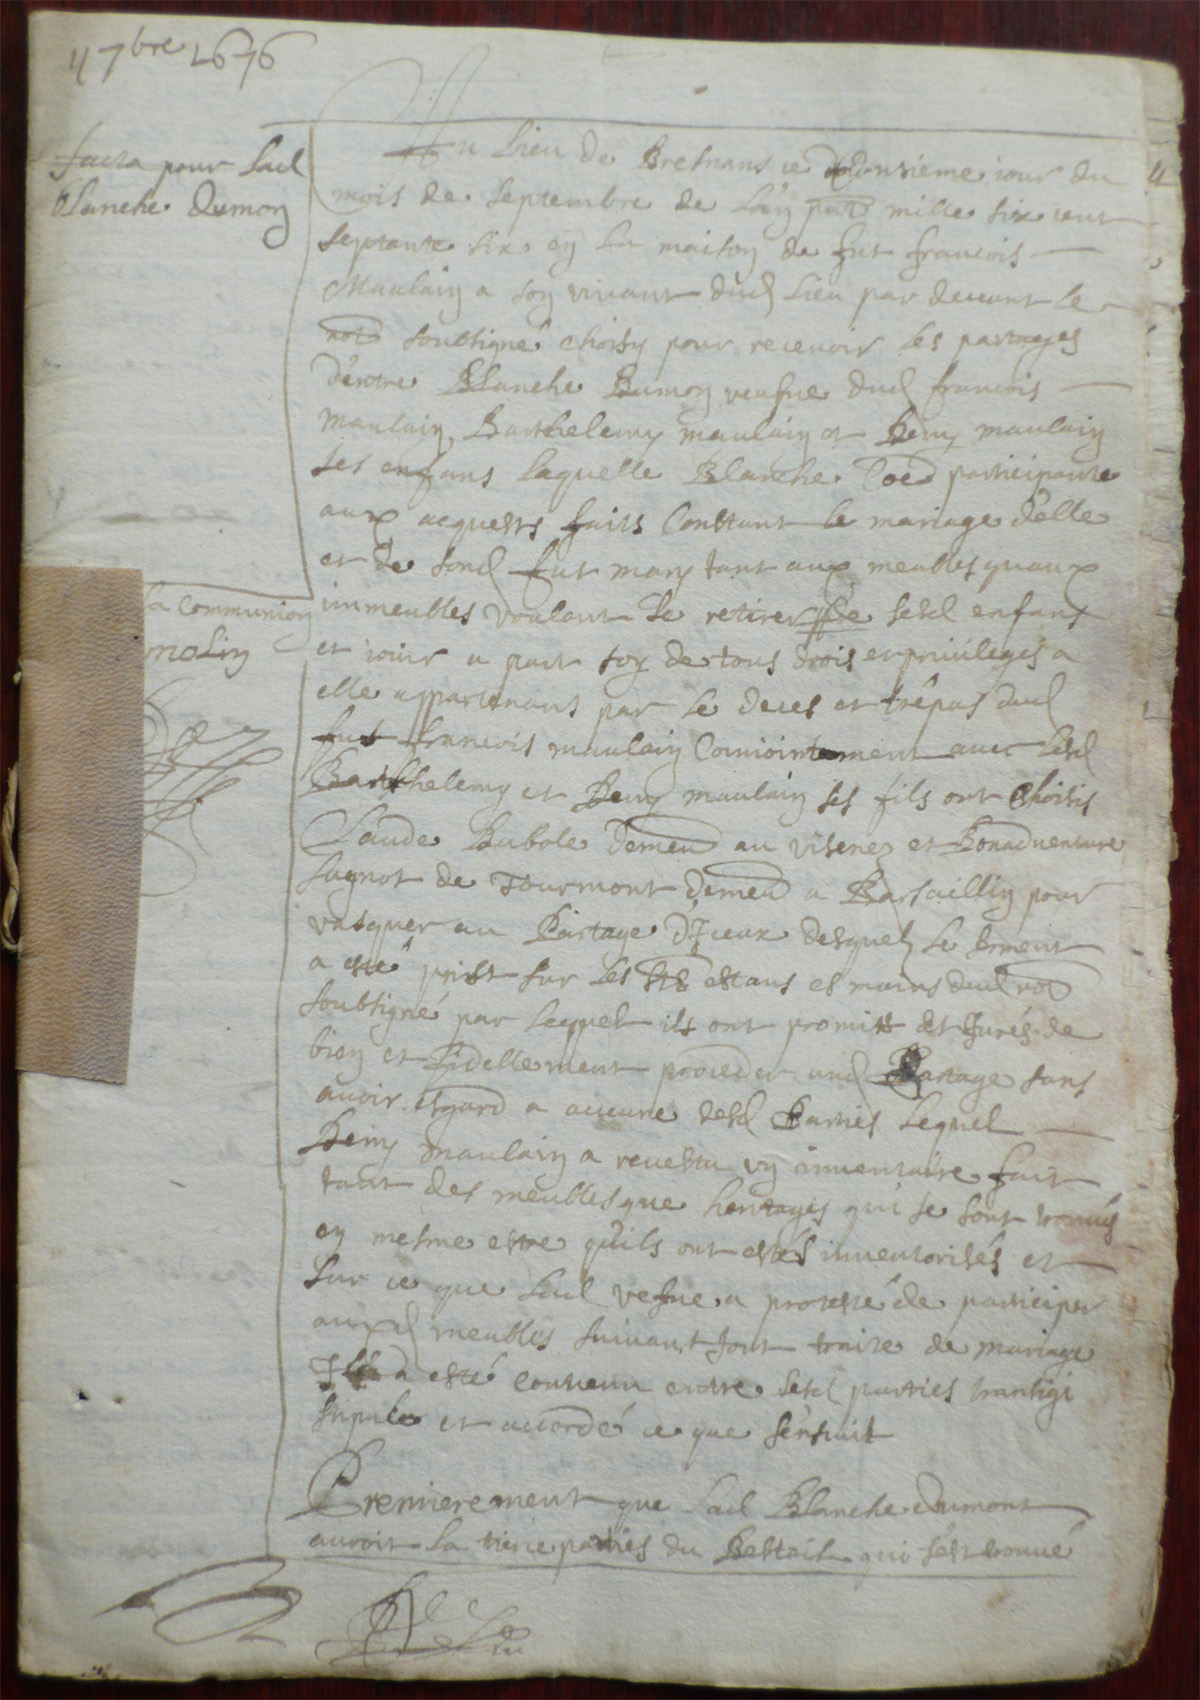 4 7bre 1676
facta pour lad
blanche Dumon
la Communion
molin
Au Lieu de Bresnans ce onzieme iour du
mois de Septembre de lan mille six cent
septante six en la maison de fut francois
Maulain a son vivant dud Lieu par devant le
not soubsigné choisy pour recevoir les partages
d'entre Blanche Dumon veufue dud francois
maulain, Barthelemy maulain et Deny maulain
ses enfans laquelle Blanche participante
aux acquests faits Constant le mariage d'elle
et de sond fut mary tant aux meubles quaux
immeubles voulant se retirer de sesd enfans
et iouir a part soy de tous drois et privileges a
elle appartenans par le deces et trêpas dud
fut francois maulain Comiointement avec lesd
Barthelemy et Deny maulain ses fils ont Choisis
Claude Bubole demeu au viseney et Bonaduenture
lagnot de Tourmont demeu a Barsaillin pour
vasquer au Partage d'Iceux desquels le serment
a esté prist sur les estans es mains dud not
soubsigné par lequel ils ont promist et Jurés de
bien et fidellement proceder aud Partage sans
avoir esgard a aucune desd Parties Lequel
Deny maulain a revestu un inventaire fait
tant des meubles que heritages qui se sont trouvés
en mesme estre quils ont estés inventorisés et
sur ce que lad vefue a protesté de participer
auxd meubles suivant traite de mariage
a esté convenu entre lesd parties transigé
stipule et accordé ce que s'ensuit
Premierement que lad Blanche Dumont
auroit la tierce parties du Bestail qui sest trouvé